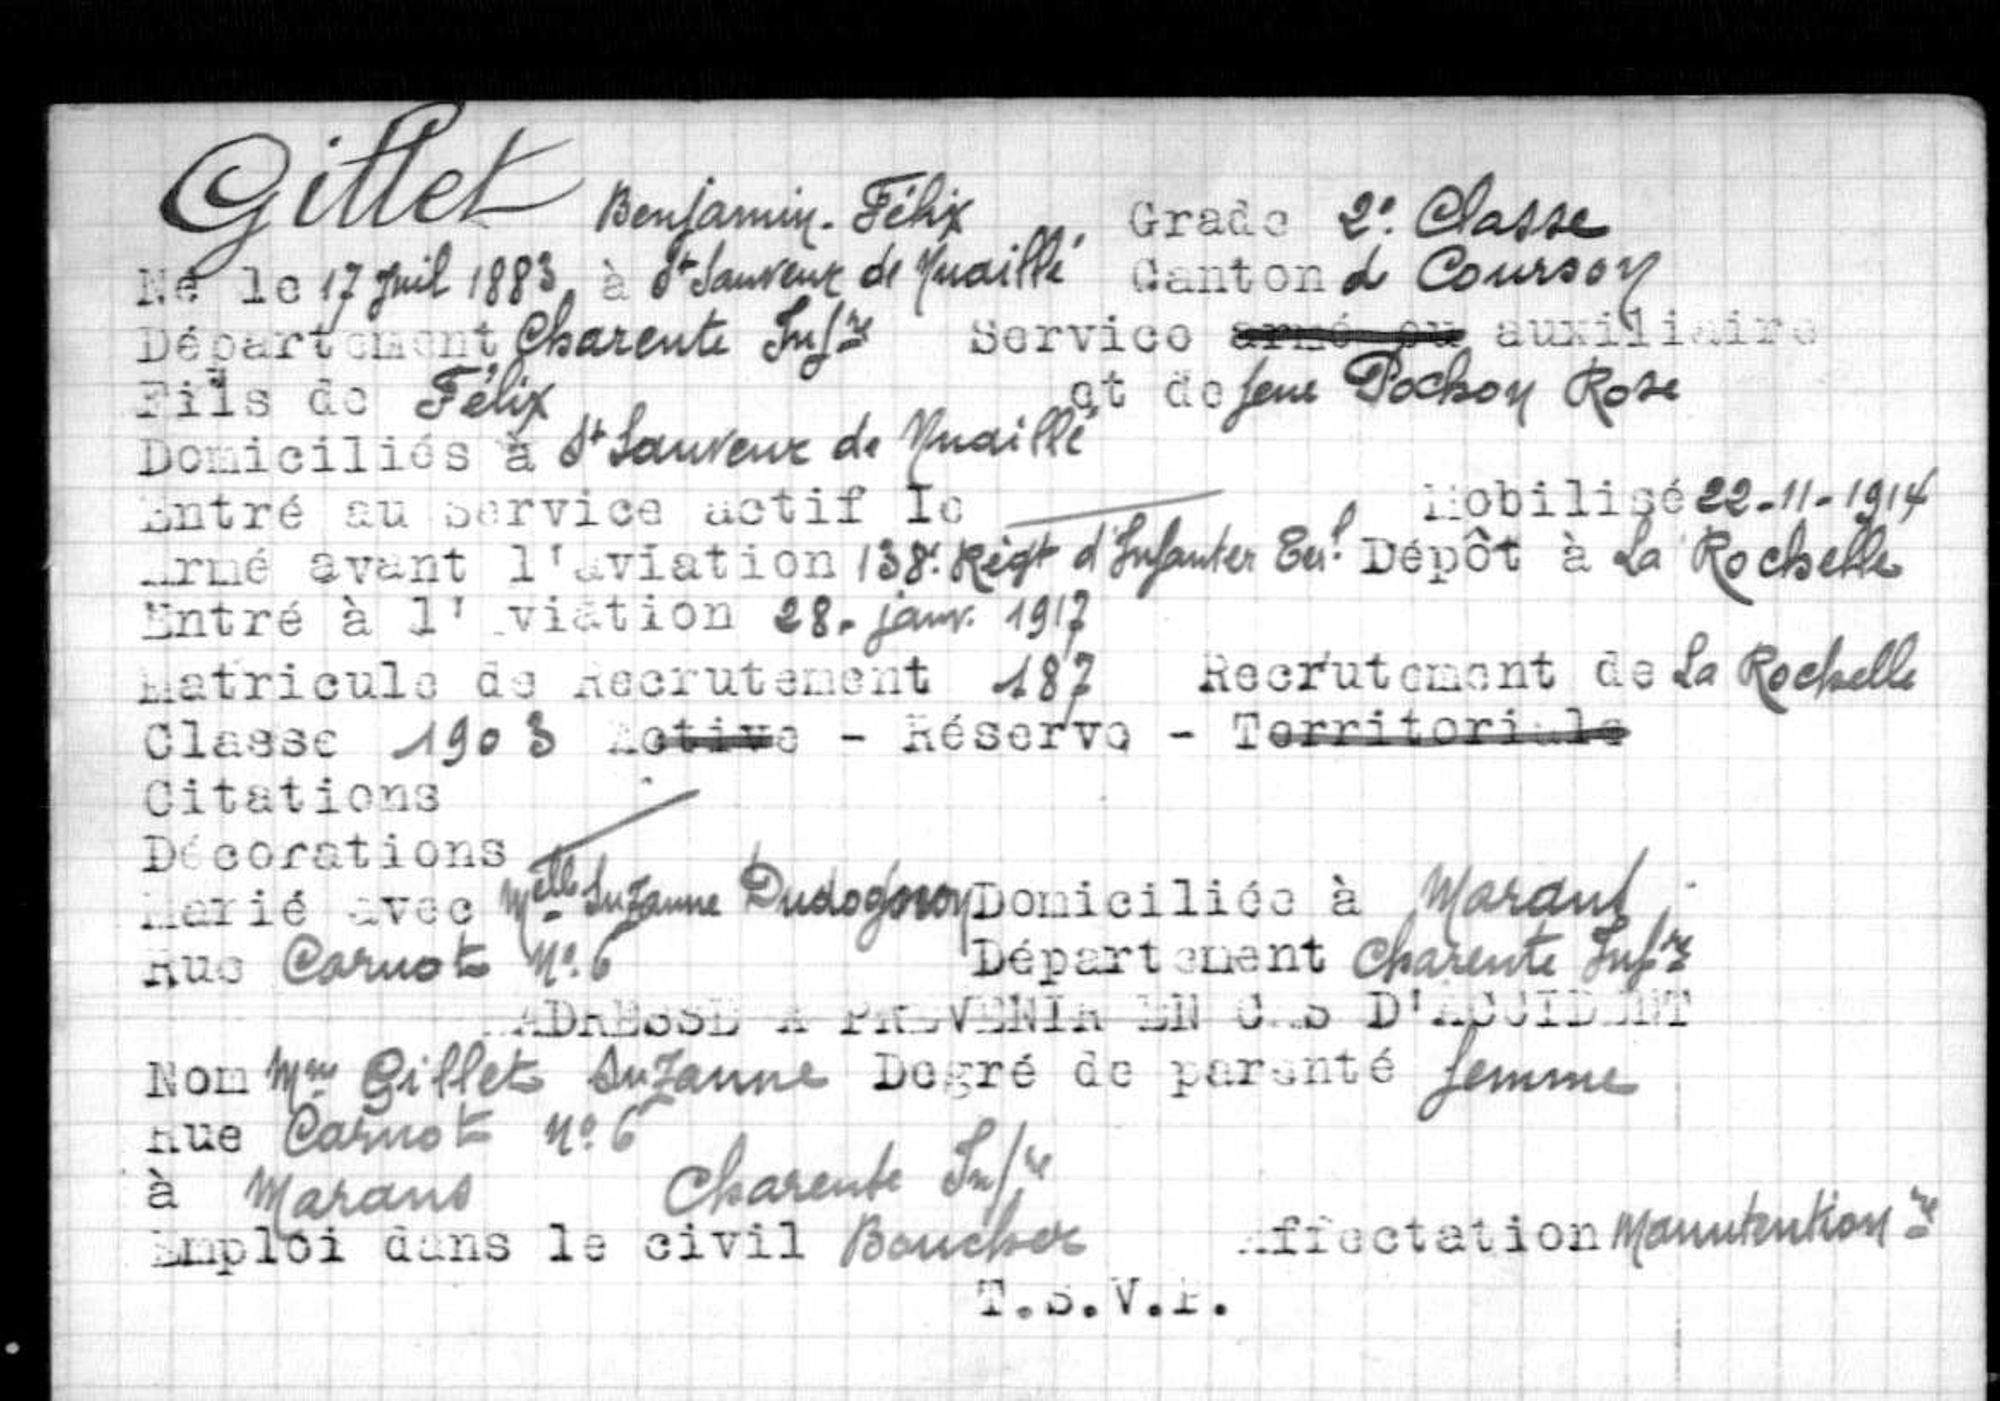 Gillet Benjamin-Félix Grade 2e Classe
Né le 17 Juil 1883 à St Sauveur de Nuaillé Canton d Courson
Département Charente Infre Service armé ou auxiliaire
Fils de Félix et de feue Pochon Rose
Domiciliés à St Sauveur de Nuaillé
Entré au Service actif le — Mobilisé 22-11-1914
Armé avant l'aviation 138e Régt d'Infanter Terl Dépôt à La Rochelle
Entré à l'Aviation 28. janv. 1917
Matricule de Recrutement 187 Recrutement de La Rochelle
Classe 1903 Active - Réserve - Territoriale
Citations
Décorations
Marié avec Melle Suzanne Dudognon Domiciliée à Marans
Rue Carnot No. 6 Département Charente Infre
ADRESSE A PREVENIR EN CAS D'ACCIDENT
Nom Mme Gillet Suzanne Degré de parenté femme
Rue Carnot No. 6
à Marans Charente Infre
Emploi dans le civil Boucher Affectation Manutentionre
T.S.V.P.